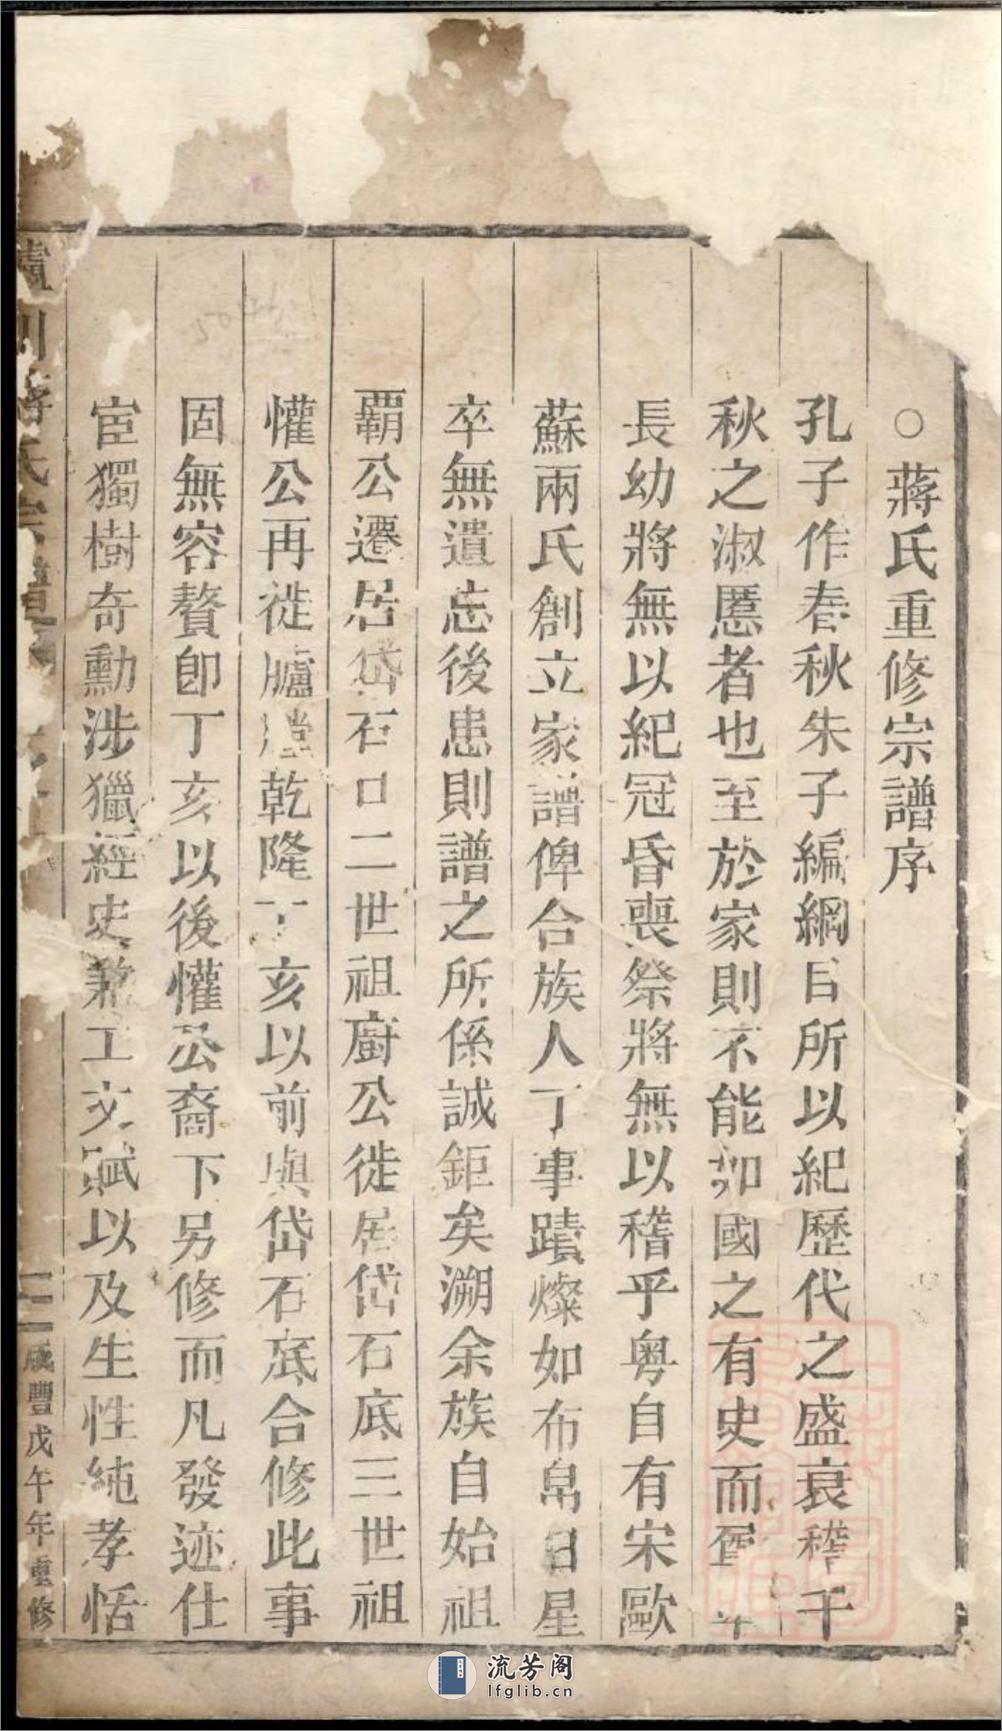 ○蔣氏重修宗譜序
孔子作春秋朱子編綱目所以紀歷代之盛衰稽千
秋之淑慝者也至於家則不能如國之有史而尊卑
長幼將無以紀冠昏喪祭將無以稽乎粵自有宋歐
蘇兩氏創立家譜俾合族人丁事蹟燦如布帛日星
卒無遺忘後患則譜之所係誠鉅矣溯余族自始祖
霸公遷居岱石口二世祖廚公徙居岱石底三世祖
懽公再徙臚𤅀乾隆丁亥以前與岱石底合修此事
固無容贅即丁亥以後懽公裔下另修而凡發迹仕
宦獨樹奇勳涉獵經史兼工文賦以及生性純孝恬
川蔣氏宗譜
咸豐戊午年重修
流芳阁
lfglib.cn